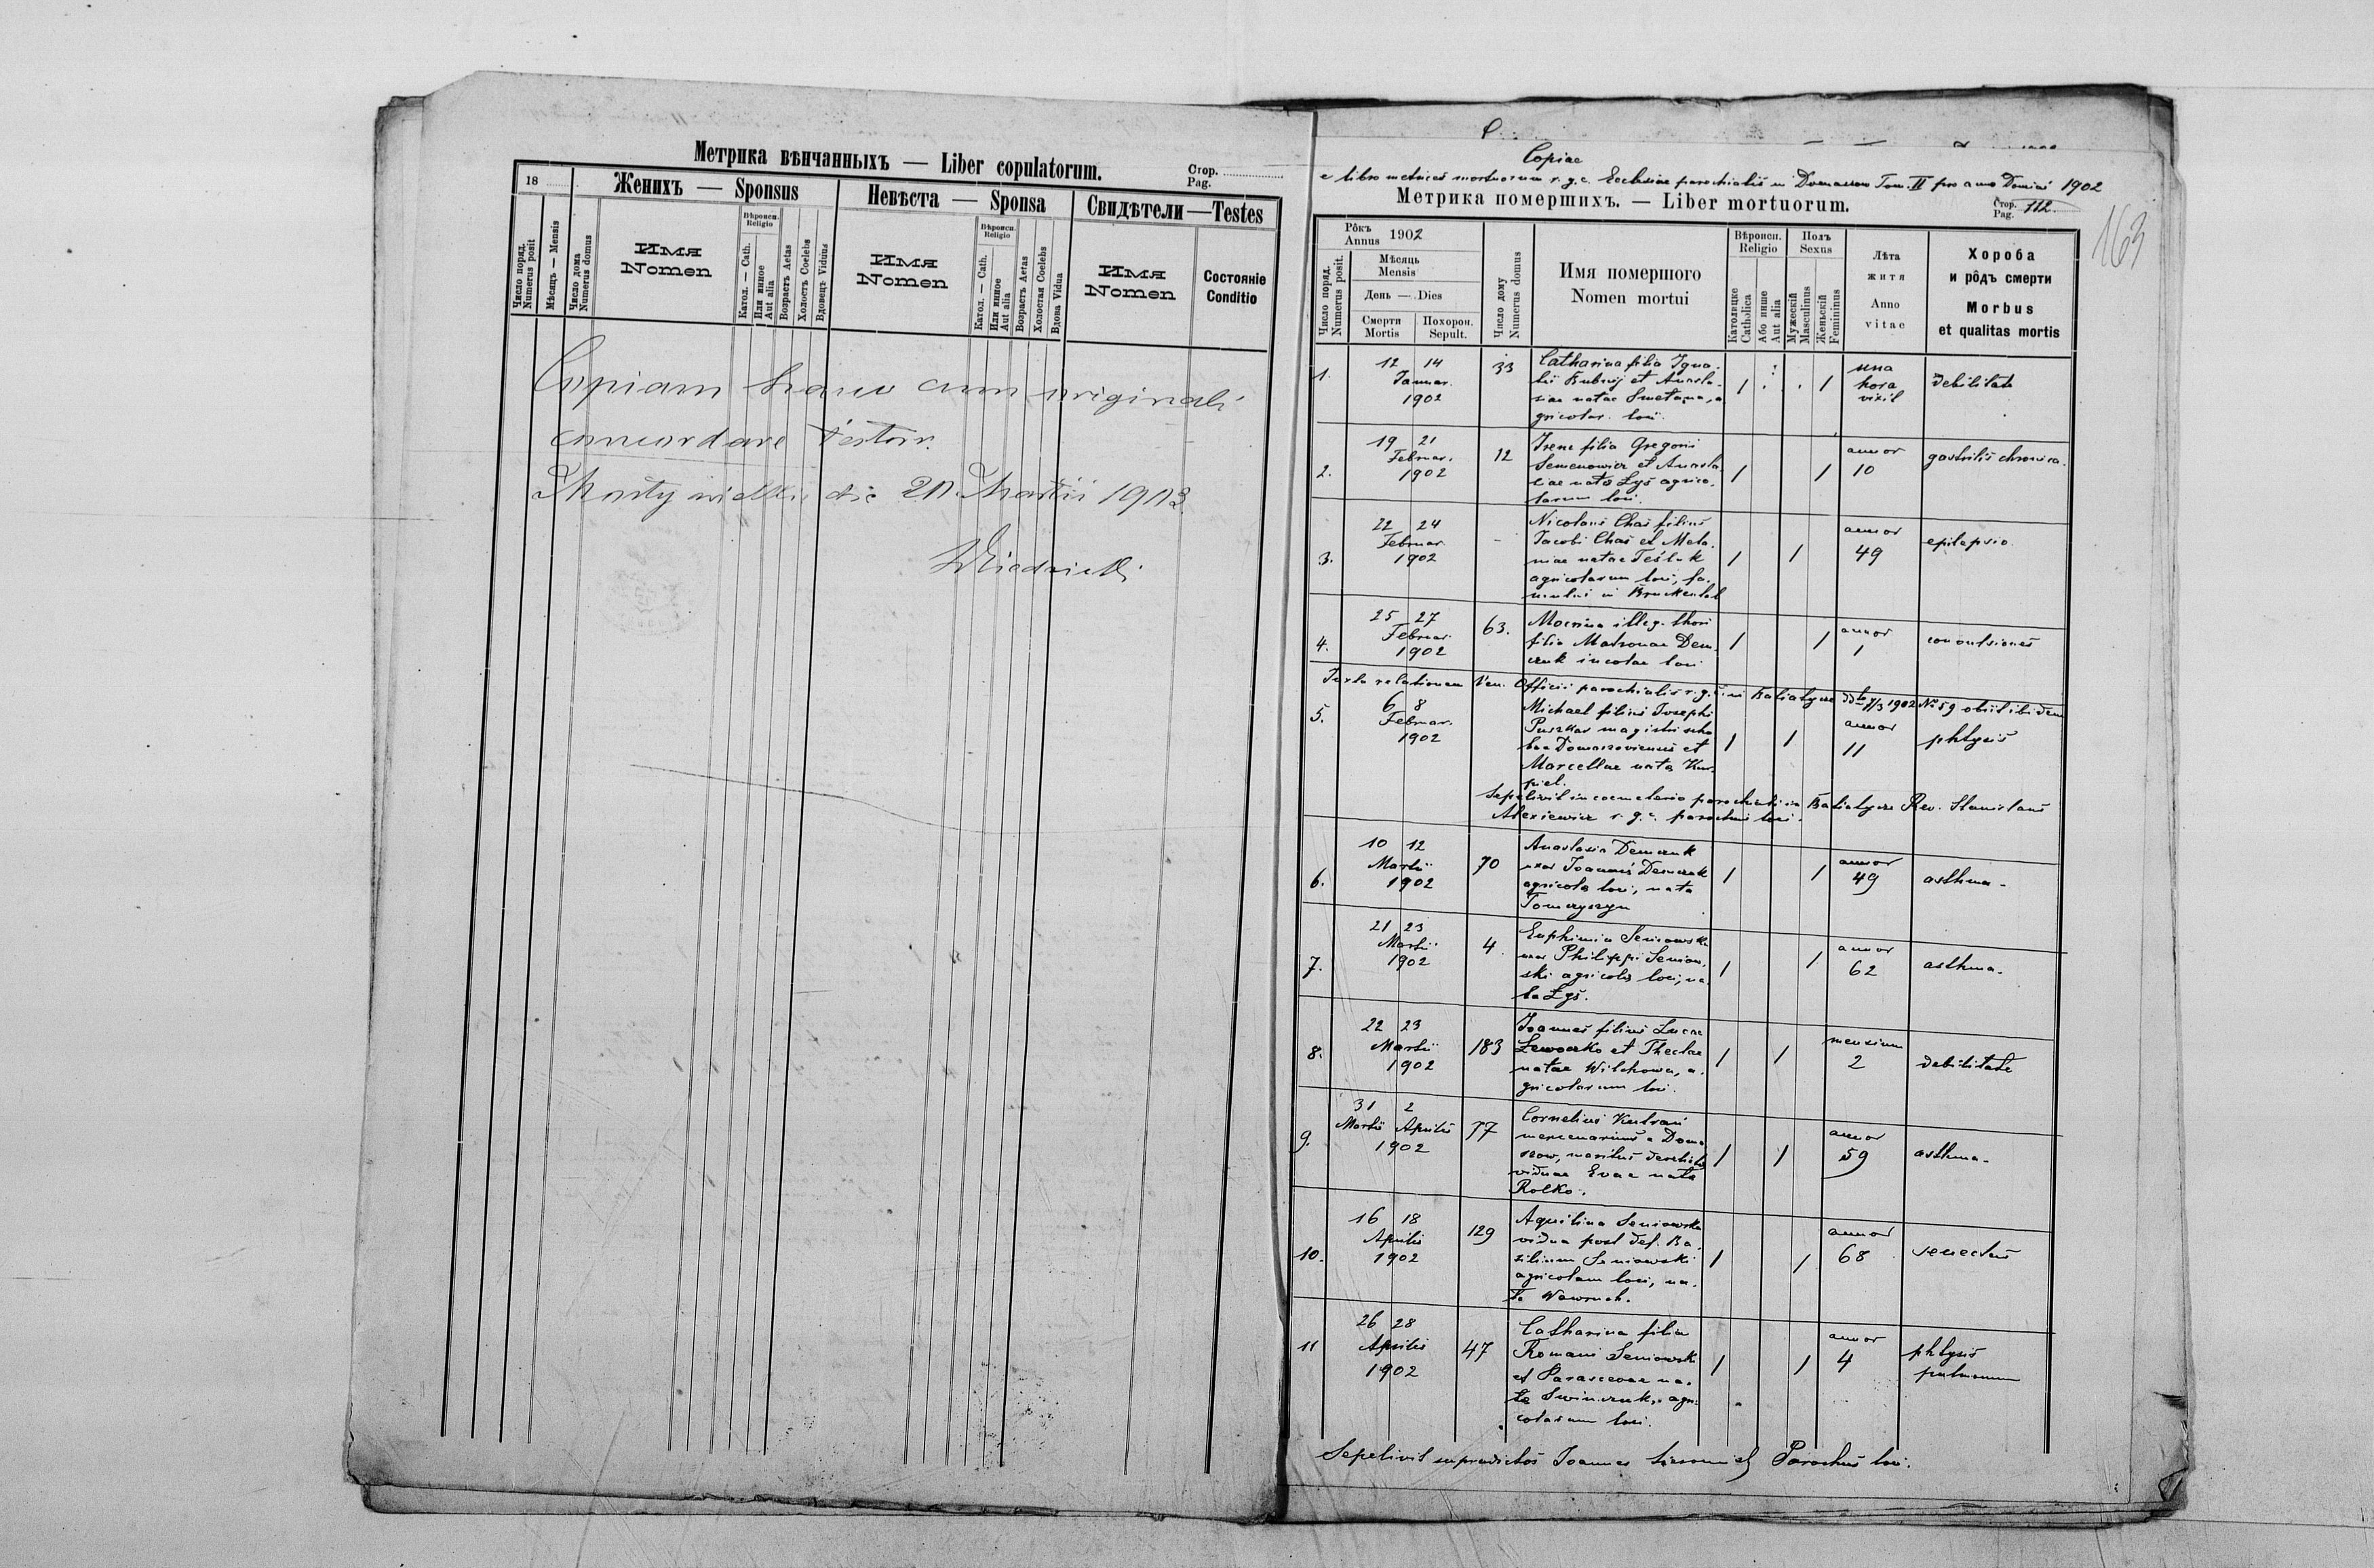 Метрика вѣнчанныхъ — Liber copulatorum.
Стор.
Pag.
18
Женихъ — Sponsus
Невѣста — Sponsa
Свидѣтели — Testes
Число поряд.
Numerus posit
Мѣсяць — Mensis
Число дома
Numerus domus
Имя
Nomen
Вѣроисп.
Religio
Катол. — Cath.
Или инное
Aut alia
Возрастъ Aetas
Холостъ Coelebs
Вдовецъ Viduus
Имя
Nomen
Вѣроисп.
Religio
Катол. — Cath.
Или инное
Aut alia
Возрастъ Aetas
Холостая Coelebs
Вдова Vidua
Имя
Nomen
Состояніе
Conditio
Copiam hanc cum originali
concordare testor.
die 20 Martii 1903
Copiae
e libro metrices mortuorum r. g. c. Ecclesiae parochialis in Domaszow Tom. II pro anno Domini 1902
Метрика помершихъ. — Liber mortuorum.
Стор.
Pag. 112.
163
Рôкъ
Annus 1902
Число поряд.
Numerus posit.
Мѣсяць
Mensis
День — Dies
Смерти
Mortis
Похорон.
Sepult.
Число дому
Numerus domus
Имя помершого
Nomen mortui
Вѣроисп.
Religio
Католицке
Catholica
Або инше
Aut alia
Полъ
Sexus
Мужескій
Masculinus
Женьскій
Feminimus
Лѣта
житя
Anno
vitae
Хороба
и рôдъ смерти
Morbus
et qualitas mortis
1. 12 14
Januar.
1902
33
Catharina filia Igna-
tii Bubnij et Anasta-
siae natae Smetana, a
gricolar. loci.
1 1
una
hora
vixit
debilitate
2. 19 21
Februar.
1902
12
Irene filia Gregorii
Semenowicz et Anasta
siae nata Łyś agrico-
larum loci.
1 1
annor
10
gastritis chronica.
3. 22 24
Februar.
1902
-
Nicolaus Chaś filius
Jacobi Chaś et Mela-
niae natae Teśluk
agricolarum loci, fa-
mulus in Bruckental
1 1
annor
49
epilepsio
4. 25 27
Februar.
1902
63.
illeg. thori
filia Matronae Dem-
czuk incolae loci
1 1
annor
1
convulsiones
Juxta relationem Ven. Officii parochialis r. g. c. in Batiatycze ddto 7/3 1902 No 59 obiit ibidem
5. 6 8
Februar.
1902
Michael filius Josephi
Puszkar magistri scho
lae Domaszoviensis et
Marcellae nata Kur-
piel.
1 1
annor
11
phtysis
Sepelivit in coemeterio parochiali in Batiatycze Rev. Stanislaus
Alexiewicz r. g. c. parochus loci.
6. 10 12
Martii
1902
70
Anastasia Demczuk
uxor Joannis Demczuk
agricola loci, nata
Tomczyszyn
1 1
annor
49
asthma-
7. 21 23
Martii
1902
4
Euphimia Seniowska
uxor Philippi Seniow-
ski agricola loci, na-
ta Łyś.
1 1
annor
62
asthma-
8. 22 23
Martii
1902
183
Joannes filius Lucae
Lewoczko et Theclae
natae Wilchowa, a-
gricolarum loci.
1 1
mensium
2
debilitate
9. 31 2
Martii Aprilis
1902
77
Cornelius Kutrań
mercenarius e Doma
szow, maritus derelictae
viduae Evae nata
Rolko.
1 1
annor
59
asthma-
10. 16 18
Aprilis
1902
129
Aquilina Seniowska
vidua post def. Ba-
silium Seniowski
agricolam loci, na-
ta Wawruch.
1 1
annor
68
senectus
11 26 28
Aprilis
1902
47
Catharina filia
Romani Seniowski
et Parascevae na-
ta Swinczuk, agri
colarum loci.
1 1
annor
4
phtysis
pulmonum
Sepelivit supradictos Joannes Parochus loci.